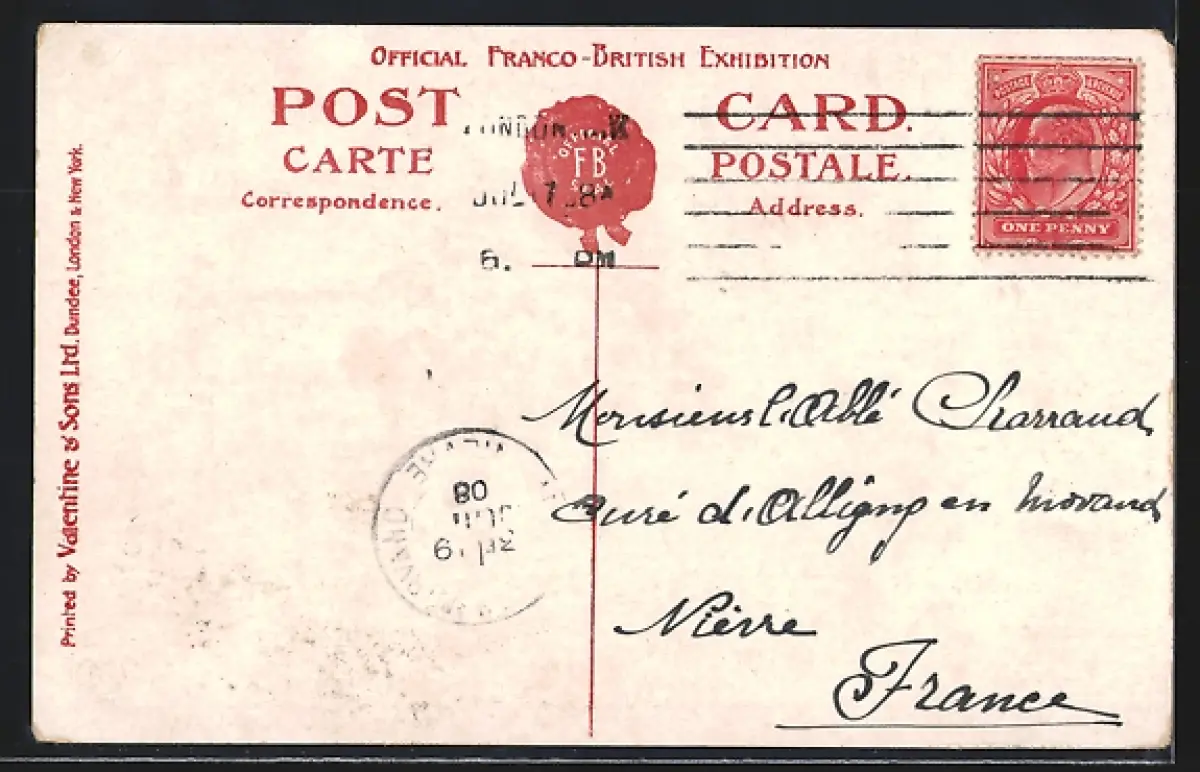 OFFICIAL FRANCO-BRITISH EXHIBITION
POST CARD.
CARTE POSTALE.
Correspondence. Address.
OFFICIAL
FB
SEAL
LONDON
JUL 17 08
6. PM
ONE PENNY
Printed by Valentine & Sons Ltd. Dundee, London & New York.
Monsieur l'Abbé Charraud
Curé d'Alligny en Morvand
Nièvre
France
08
19